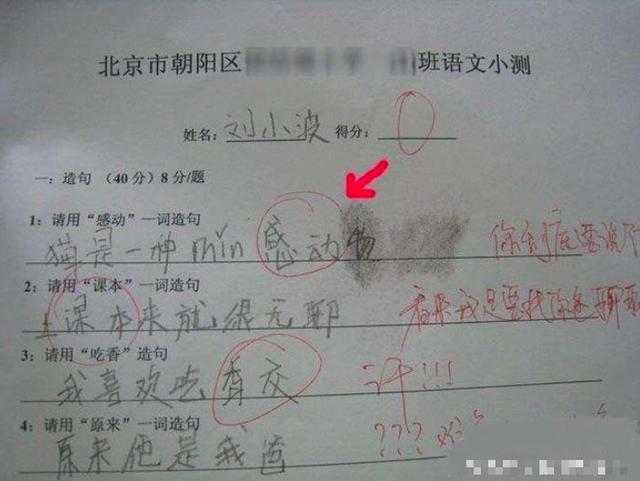 北京市朝阳区 班语文小测
姓名：刘小波 得分：0
一：造句 （40分）8分/题
1：请用“感动”一词造句
猫是一种min感动物
你到底要说
2：请用“课本”一词造句
上课本来就很无聊
看来我是要找你爸聊聊
3：请用“吃香”造句
我喜欢吃香交
汗!!!
4：请用“原来”一词造句
原来他是我爸
???